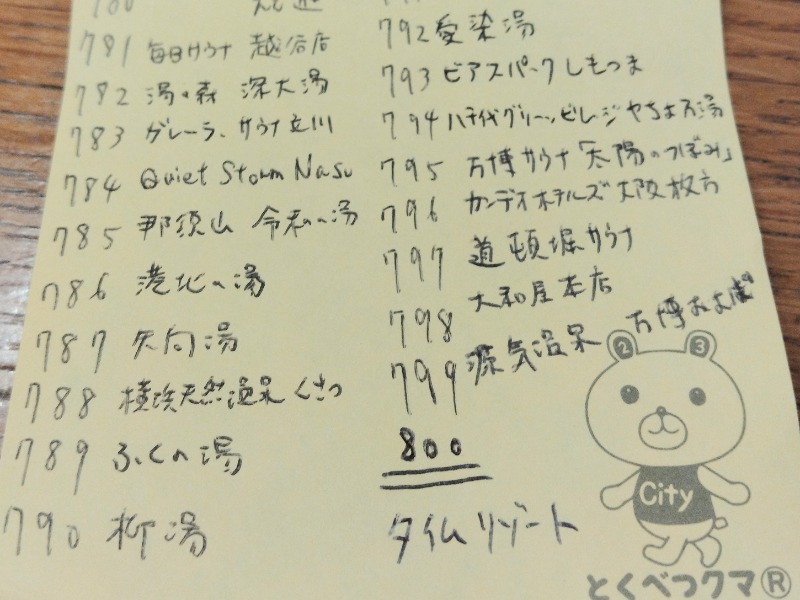 780
781 毎日サウナ 越谷店
782 湯の森 深大湯
783 グレーラ、サウナ立川
784 Quiet Storm Nasu
785 那須山 令和の湯
786 港北の湯
787 矢向湯
788 横浜天然温泉 くさつ
789 ふくの湯
790 柳湯
792 愛染湯
793 ビアスパークしもつま
794 八千代グリーンビレジ やちよ乃湯
795 万博サウナ「太陽のつぼみ」
796 カンデオホテルズ大阪枚方
797 道頓堀サウナ
798 大和屋本店
799 源気温泉 万博おゆば
800
タイムリゾート
2 3
City
とくべつクマ®